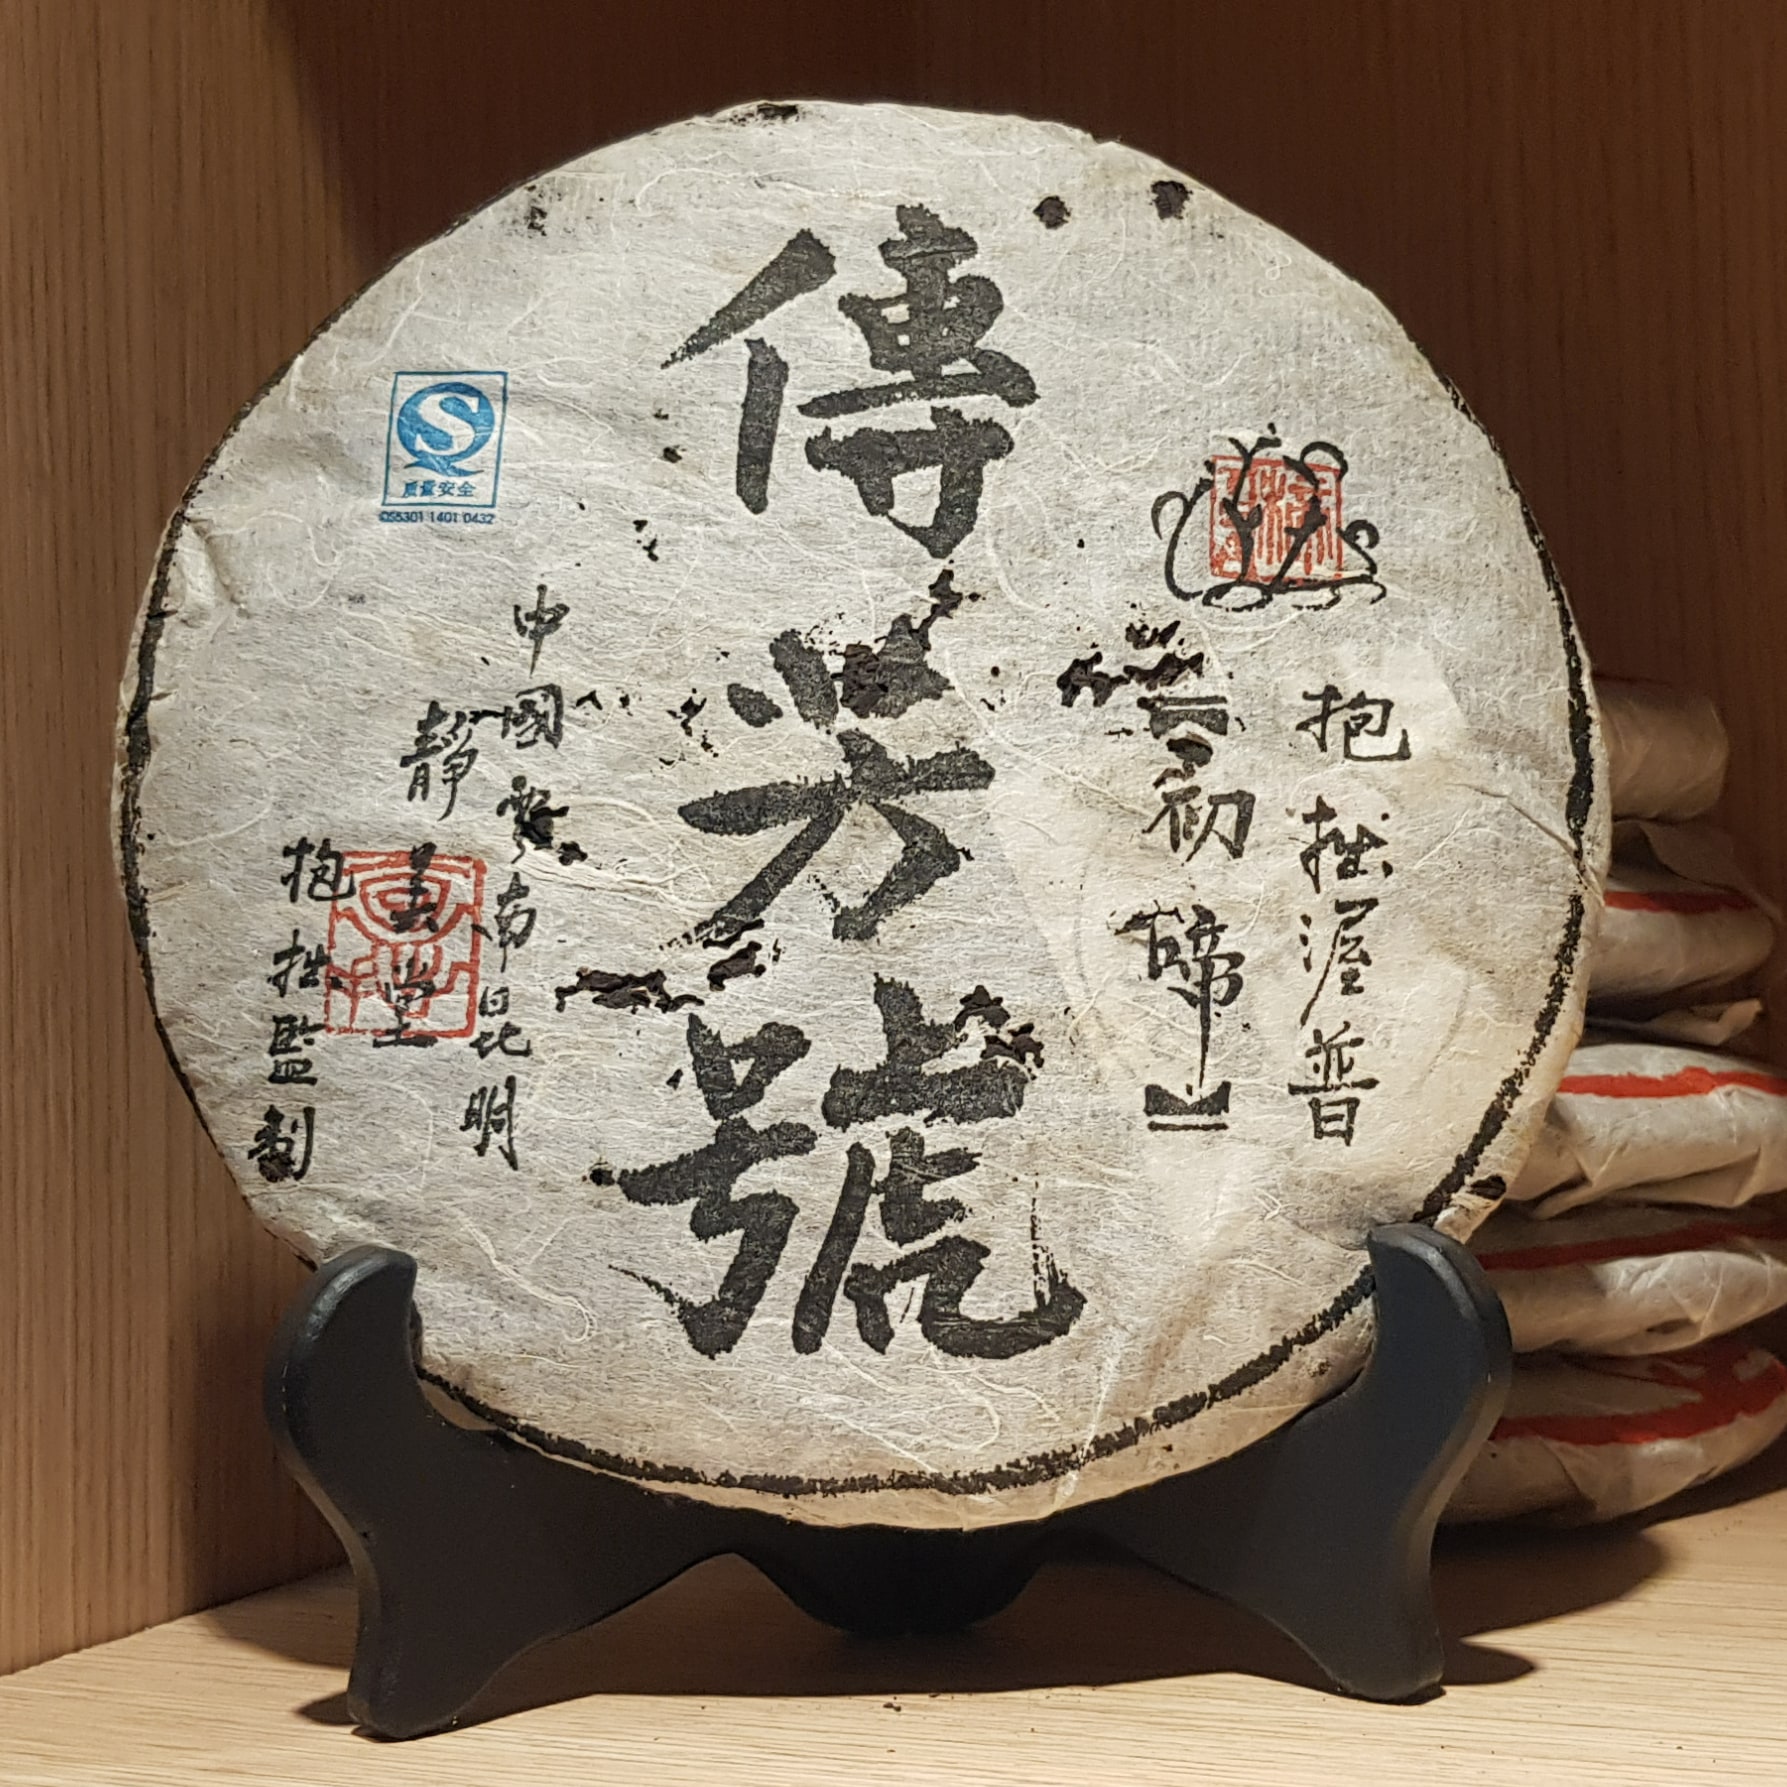 抱拙渥普
【初啼】
傳芳號
中國雲南昆明
靜美堂
抱拙監制
质量安全
QS5301 1401 0432